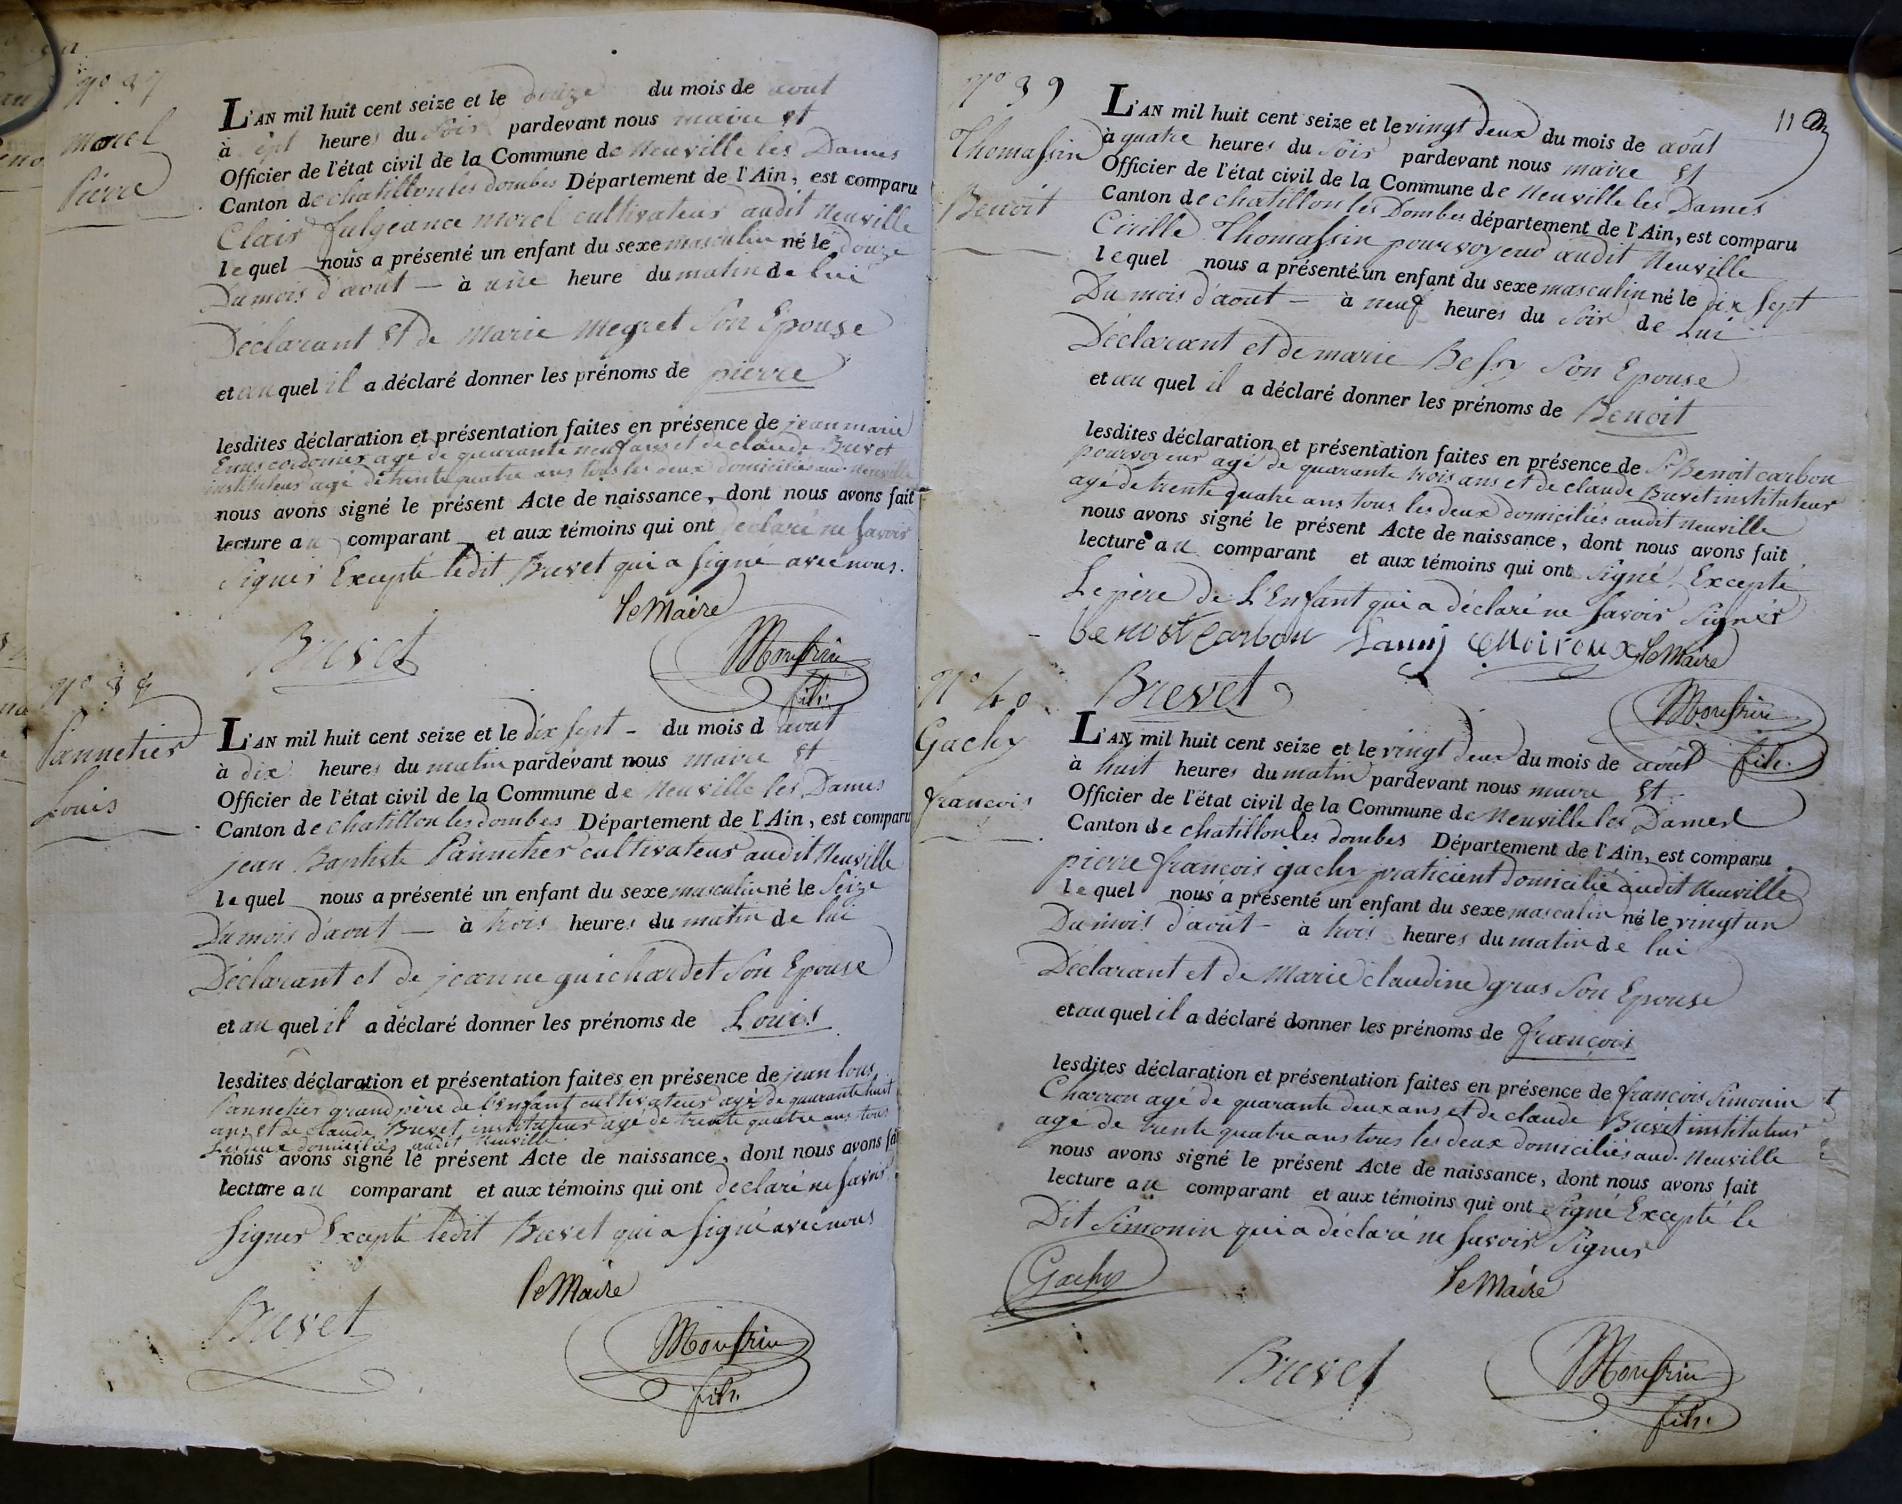 N° 37
Morel
Pierre
L'AN mil huit cent seize et le douze du mois de aout
à sept heures du soir pardevant nous maire et
Officier de l'état civil de la Commune de Neuville les Dames
Canton de chatillon les dombes Département de l'Ain, est comparu
Clair fulgeance morel cultivateur audit Neuville
lequel nous a présenté un enfant du sexe masculin né le douze
Du mois d'aout — à une heure du matin de lui
Déclarant et de Marie Megret Son Epouse
et au quel il a déclaré donner les prénoms de pierre
lesdites déclaration et présentation faites en présence de jean marie
cordonier agé de quarante neuf ans et de claude Brevet
instituteur agé de trente quatre ans tous les deux domiciliés aud. Neuville
nous avons signé le présent Acte de naissance, dont nous avons fait
lecture au comparant et aux témoins qui ont declaré ne savoir
Signer Excepté ledit Brevet qui a signé avec nous.
le Maire
Brevet
Monfrin
fils.
N° 38
Pannetier
Louis
L'AN mil huit cent seize et le dix sept - du mois d aout
à dix heures du matin pardevant nous maire et
Officier de l'état civil de la Commune de Neuville les Dames
Canton de chatillon les dombes Département de l'Ain, est comparu
jean Baptiste Pannetier cultivateur audit Neuville
lequel nous a présenté un enfant du sexe masculin né le Seize
Du mois d'aout — à trois heures du matin de lui
Déclarant et de jeanne guichardet Son Epouse
et au quel il a déclaré donner les prénoms de Louis
lesdites déclaration et présentation faites en présence de jean louis
Pannetier grand père de l'enfant cultivateur agé de quarante huit
ans et de claude Brevet instituteur agé de trente quatre ans tous
Les deux domiciliés audit Neuville
nous avons signé le présent Acte de naissance, dont nous avons fai
lecture au comparant et aux témoins qui ont declaré ne savoir
Signer Excepté ledit Brevet qui a signé avec nous
le Maire
Brevet
Monfrin
fils.
11
N° 39
Thomassin
Benoit
L'AN mil huit cent seize et le vingt deux du mois de août
à quatre heures du soir pardevant nous maire et
Officier de l'état civil de la Commune de Neuville les Dames
Canton de chatillon les Dombes département de l'Ain, est comparu
Cirille Thomassin pourvoyeur audit Neuville
lequel nous a présenté un enfant du sexe masculin né le dix sept
Du mois d'aout — à neuf heures du soir de Lui
Déclarant et de marie Bessy Son Epouse
et au quel il a déclaré donner les prénoms de Benoit
lesdites déclaration et présentation faites en présence de Sr Benoit carbon
pourvoyeur agé de quarante trois ans et de claude Brevet instituteur
agé de trente quatre ans tous les deux domiciliés audit Neuville
nous avons signé le présent Acte de naissance, dont nous avons fait
lecture au comparant et aux témoins qui ont signé Excepté
Le père de L'Enfant qui a déclaré ne Savoir Signer
benoit Carbon Moiroux le Maire
Brevet
Monfrin
fils.
N° 40
Gachy
francois
L'AN mil huit cent seize et le vingt deux du mois de août
à huit heures du matin pardevant nous maire et
Officier de l'état civil de la Commune de Neuville les Dames
Canton de chatillon les dombes Département de l'Ain, est comparu
pierre françois gachy praticient domicilié audit Neuville
lequel nous a présenté un enfant du sexe masculin né le vingt un
Du mois d'août - à trois heures du matin de lui
Déclarant et de Marie claudine gras Son Epouse
et au quel il a déclaré donner les prénoms de françois
lesdites déclaration et présentation faites en présence de françois Simonin
Charron agé de quarante deux ans et de claude Brevet instituteur
agé de trente quatre ans tous les deux domiciliés aud. Neuville
nous avons signé le présent Acte de naissance, dont nous avons fait
lecture au comparant et aux témoins qui ont signé Excepté le
Dit Simonin qui a déclaré ne savoir Signer
Gachy
le Maire
Brevet
Monfrin
fils.